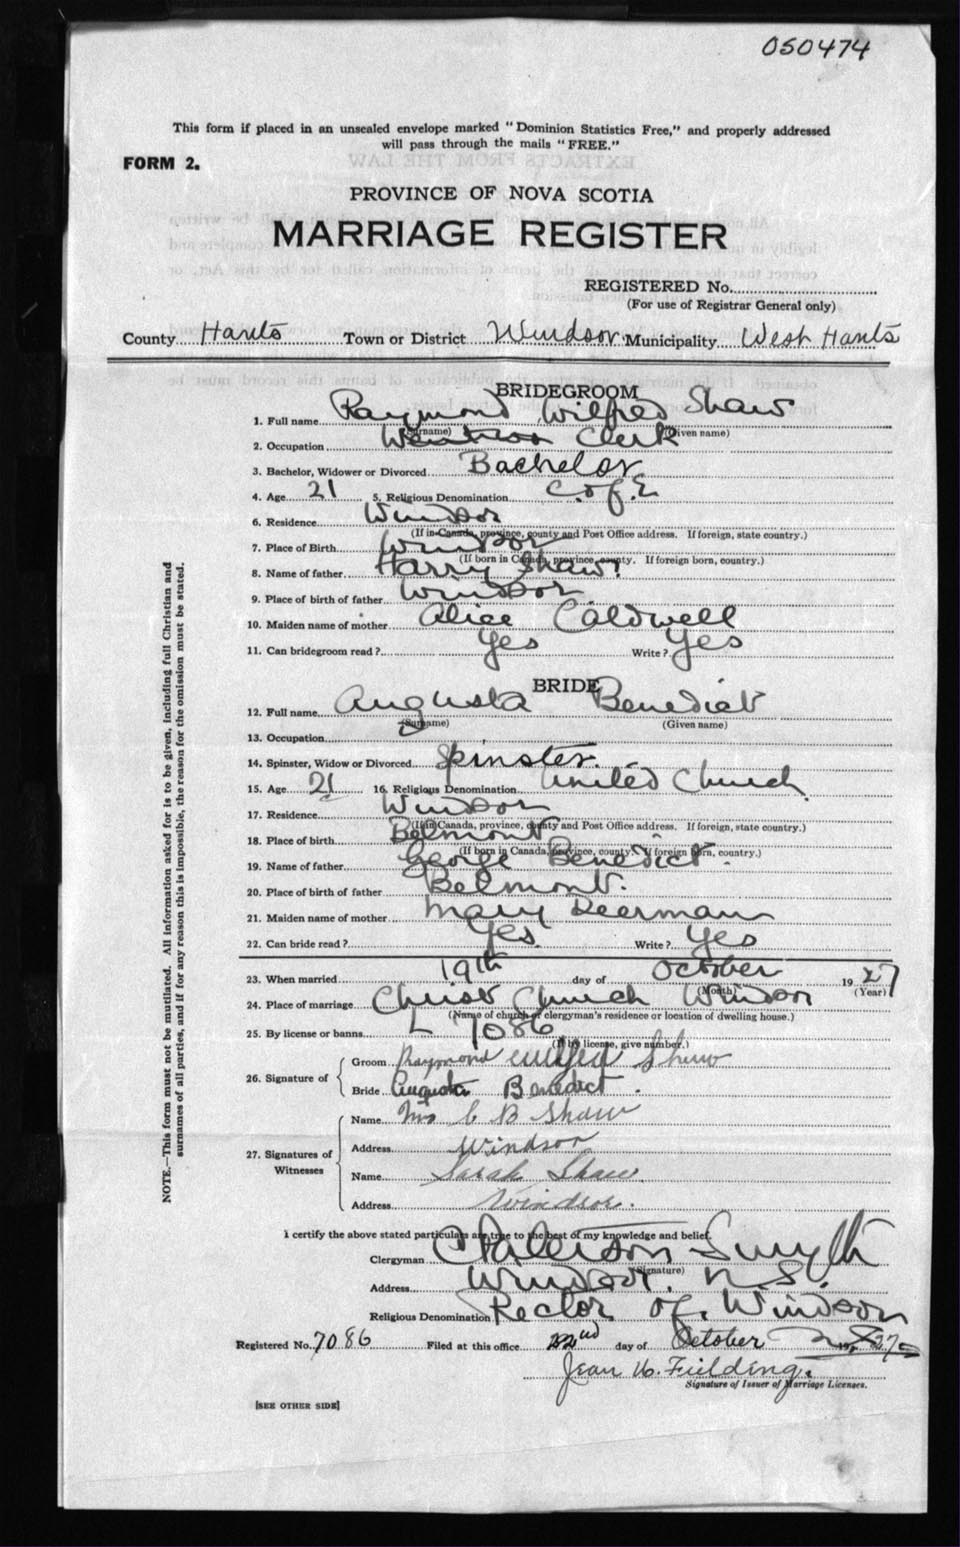 050474
This form if placed in an unsealed envelope marked "Dominion Statistics Free," and properly addressed
will pass through the mails "FREE."
FORM 2.
PROVINCE OF NOVA SCOTIA
MARRIAGE REGISTER
REGISTERED No.
(For use of Registrar General only)
County Hants Town or District Windsor Municipality West Hants
BRIDEGROOM
1. Full name Raymond Wilfred Shaw
(Surname) (Given name)
2. Occupation Clerk
3. Bachelor, Widower or Divorced Bachelor
4. Age 21 5. Religious Denomination C. of E
6. Residence Windsor
(If in Canada, province, county and Post Office address. If foreign, state country.)
7. Place of Birth Windsor
(If born in Canada, province, county. If foreign born, country.)
8. Name of father Harry Shaw
9. Place of birth of father Windsor
10. Maiden name of mother Alice Caldwell
11. Can bridegroom read? Yes Write? Yes
BRIDE
12. Full name Augusta Benedict
(Surname) (Given name)
13. Occupation
14. Spinster, Widow or Divorced Spinster
15. Age 21 16. Religious Denomination United Church
17. Residence Windsor
(If in Canada, province, county and Post Office address. If foreign, state country.)
18. Place of birth Belmont
(If born in Canada, province, county. If foreign born, country.)
19. Name of father George Benedict.
20. Place of birth of father Belmont.
21. Maiden name of mother Mary Deerman
22. Can bride read? Yes Write? Yes
23. When married 19th day of October 1927
(Month) (Year)
24. Place of marriage Christ Church Windsor
(Name of church or clergyman's residence or location of dwelling house.)
25. By license or banns L 7086
(If by license, give number.)
26. Signature of
Groom Raymond Wilfred Shaw
Bride Augusta Benedict.
27. Signatures of Witnesses
Name Mrs C B Shaw
Address Windsor
Name Sarah Shaw
Address Windsor.
I certify the above stated particulars are true to the best of my knowledge and belief.
Clergyman Smyth
(Signature)
Address Windsor. N.S.
Religious Denomination Rector of Windsor
Registered No. 7086 Filed at this office 22nd day of October 1927
Jean Fielding.
Signature of Issuer of Marriage Licenses.
[SEE OTHER SIDE]
NOTE.—This form must not be mutilated. All information asked for is to be given, including full Christian and
surnames of all parties, and if for any reason this is impossible, the reason for the omission must be stated.